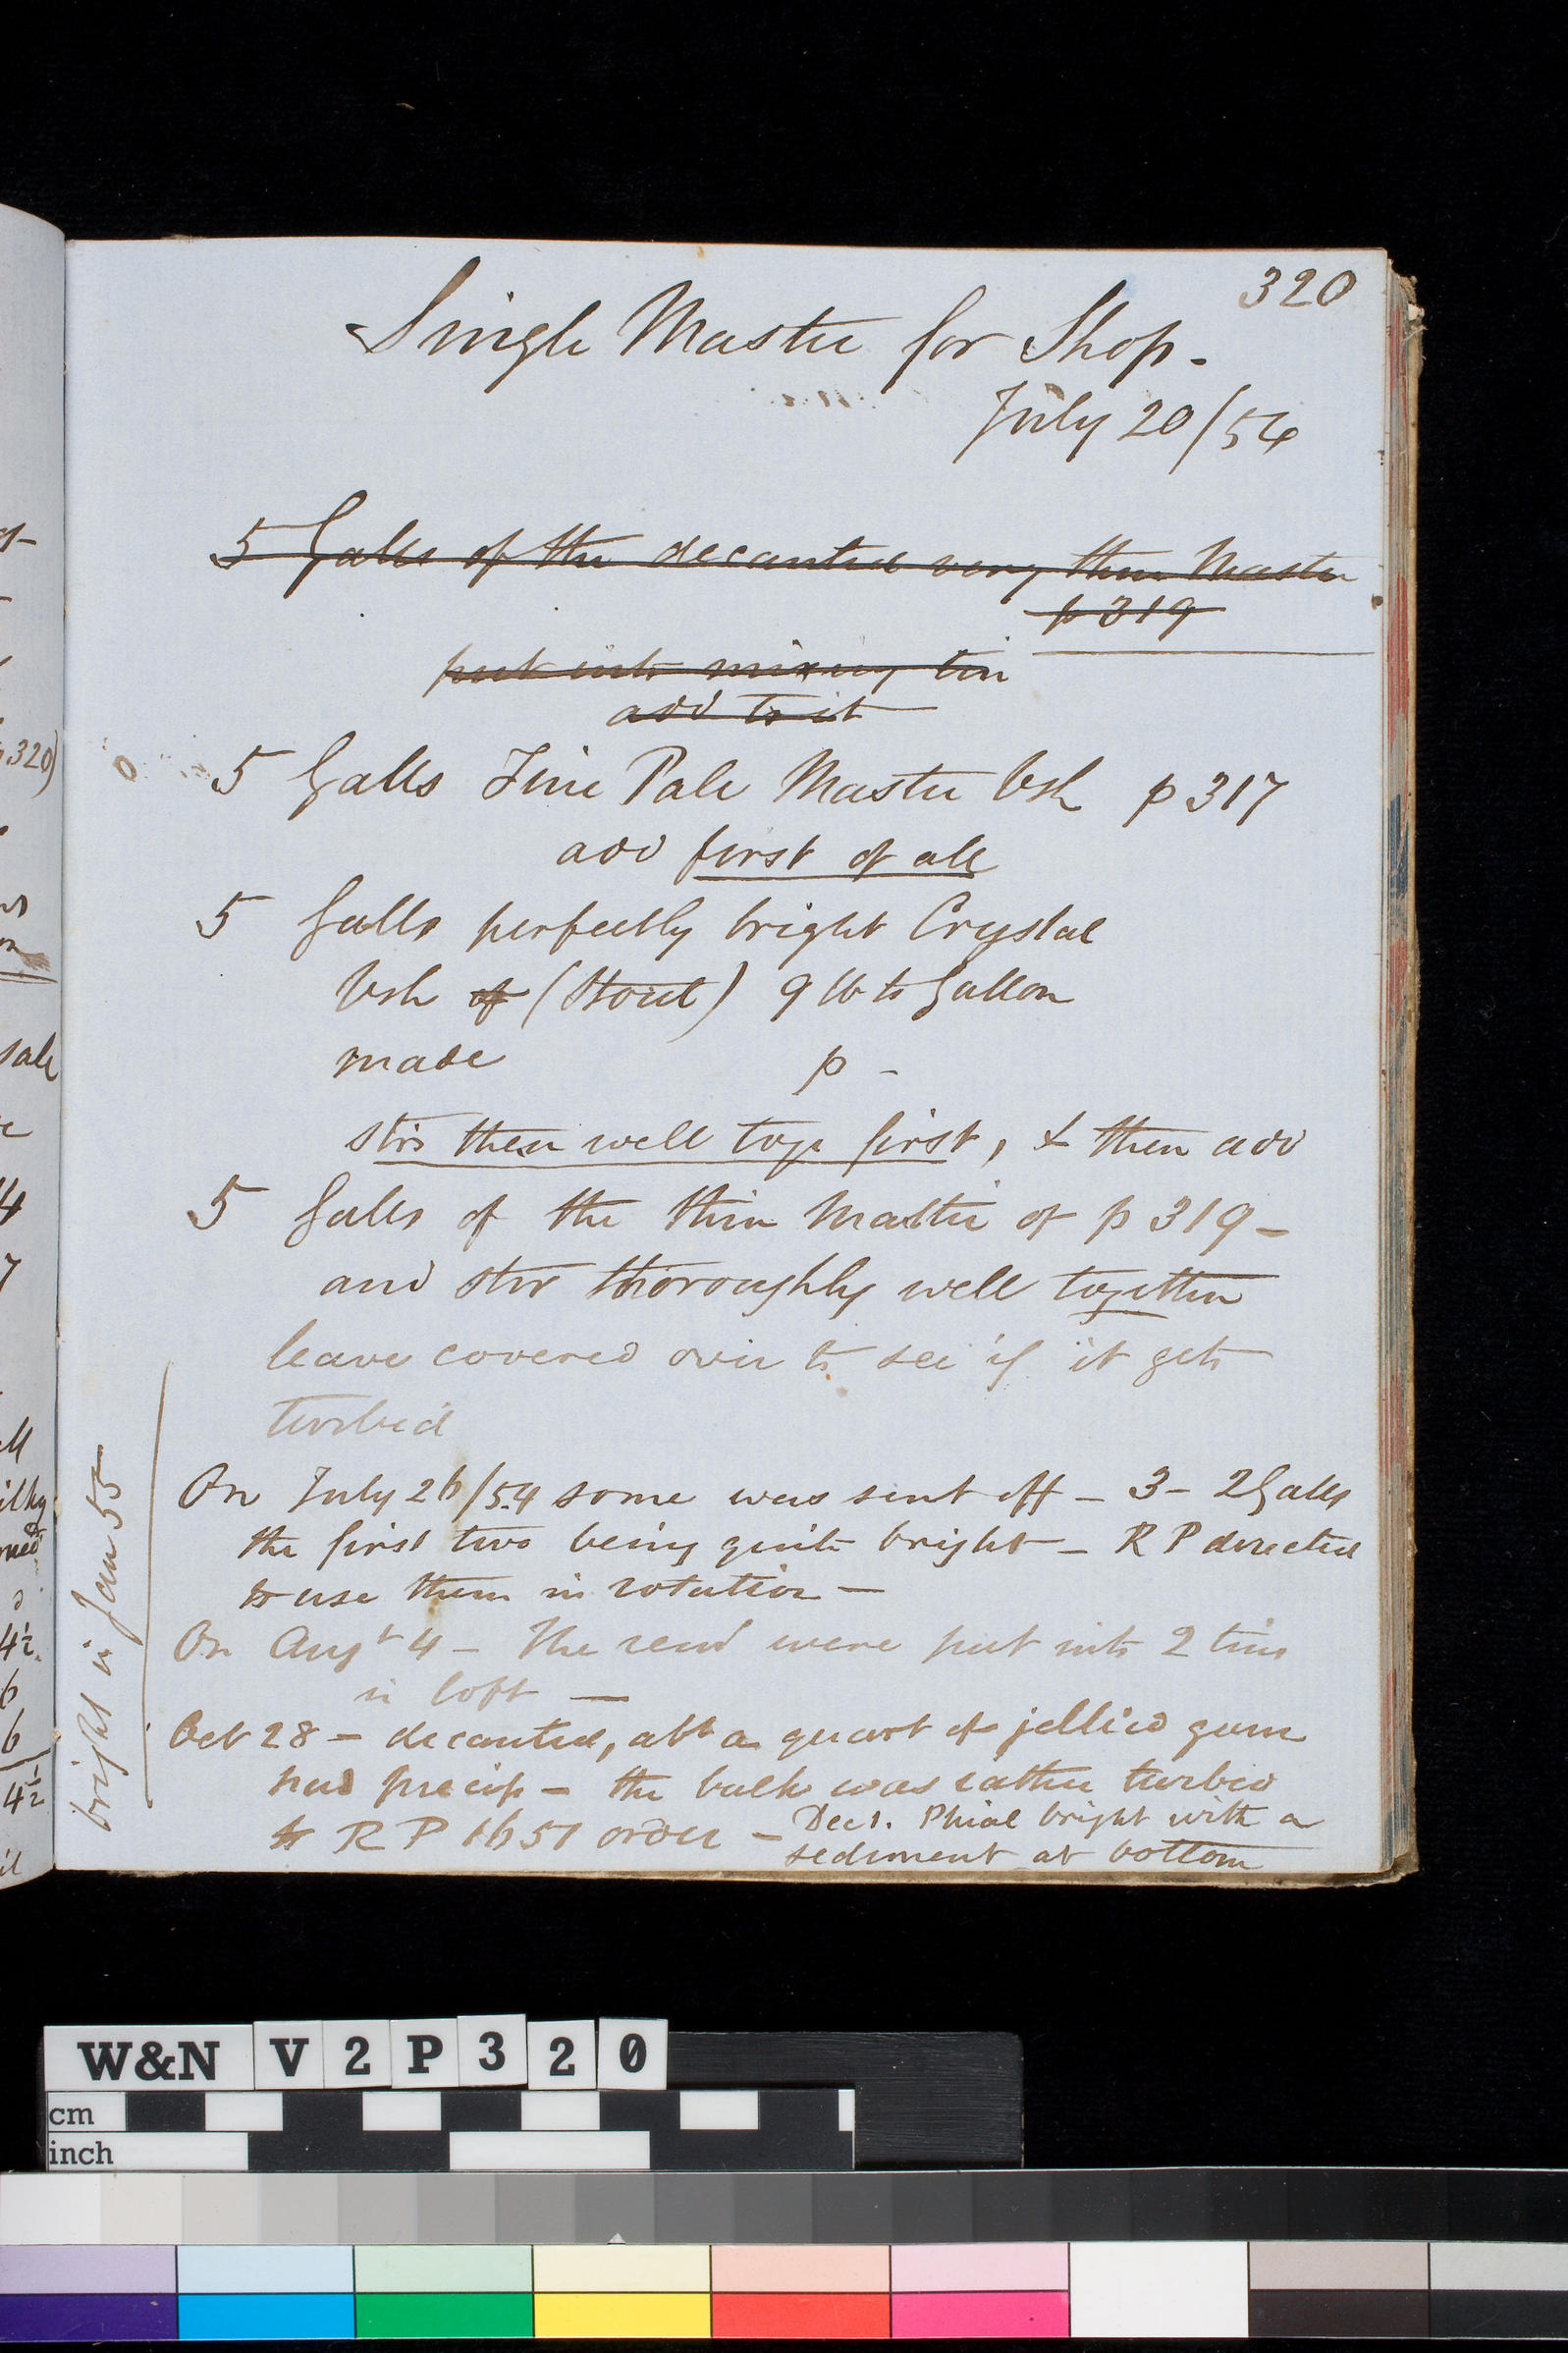 320
Single Mastic for Shop -
July 20/54
5 Galls of the decanted very thin Mastic
p 319
put into mixing tin
add to it
5 Galls Fine Pale Mastic Vsh p 317
add first of all
5 Galls perfectly bright Crystal
Vsh of (Stout) 9 lb to Gallon
made p -
stir them well togr first, & then add
5 Galls of the thin Mastic of p 319 -
and stir thoroughly well together
leave covered over to see if it gets
turbid
On July 26/54 some was sent off - 3 - 2 Galls
the first two being quite bright - R P directed
to use them in rotation -
On Augt 4 - The remd were put into 2 tins
in loft -
Oct 28 - decanted, abt a quart of jellied gum
had precip - the bulk was rather turbid
to R P 1651 order - Dec 1. Phial bright with a
sediment at bottom
bright in Jan 55
320)
sale
4
7
ilky
4½
6
6
4½
W&N V2P320
cm
inch